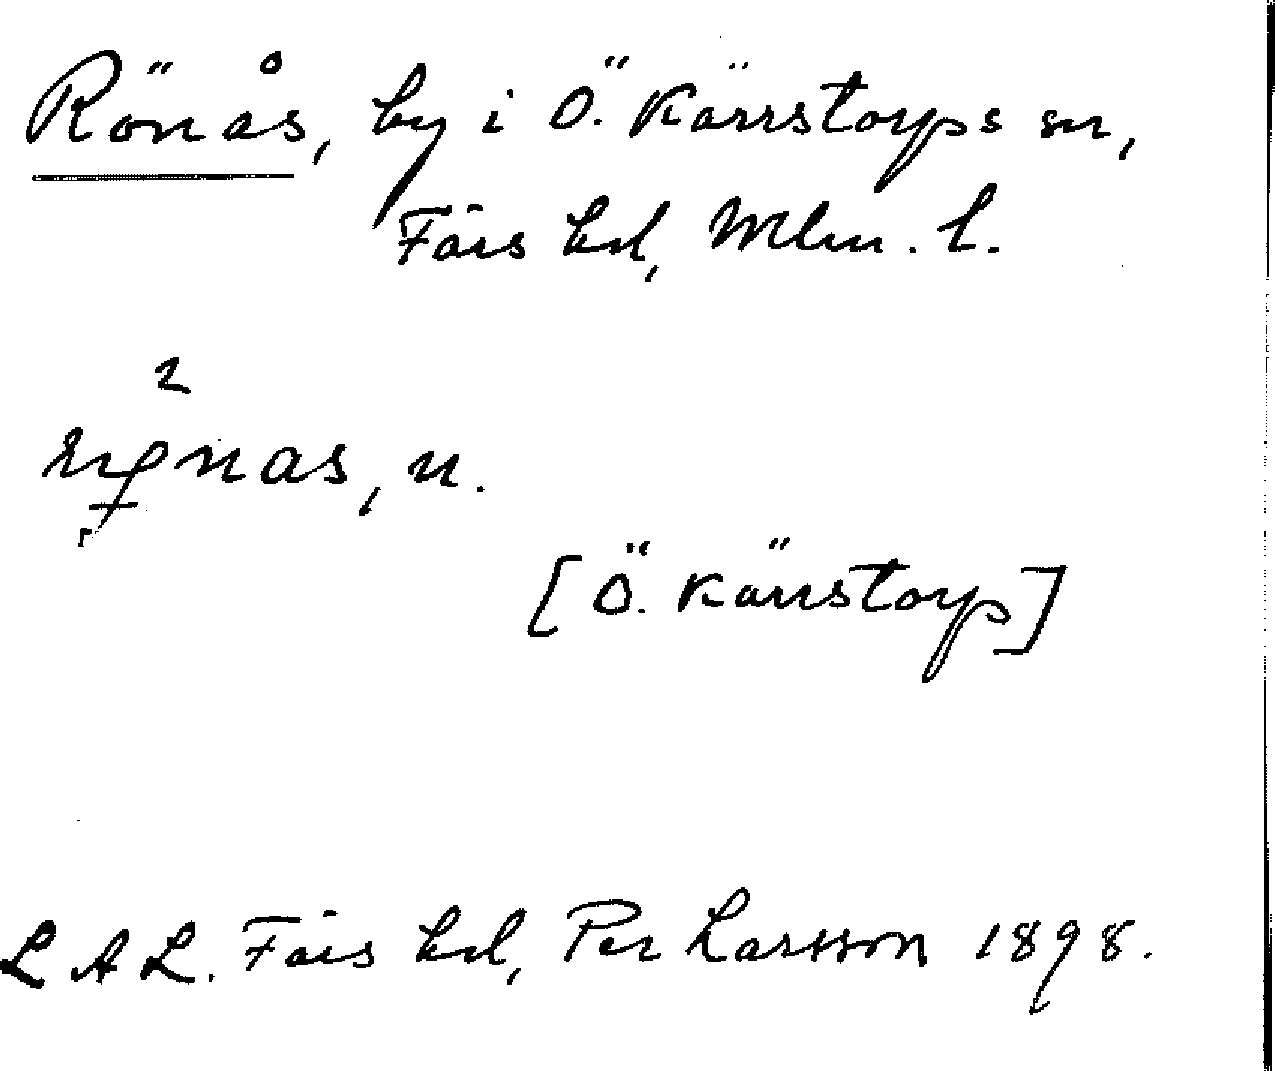 Rönås, by i Ö. Kärrstorps sn,
Färs hd, Mlm. l.
2
n.
[Ö. Kärrstorp]
L A L. Färs hd, Per Larsson 1898.